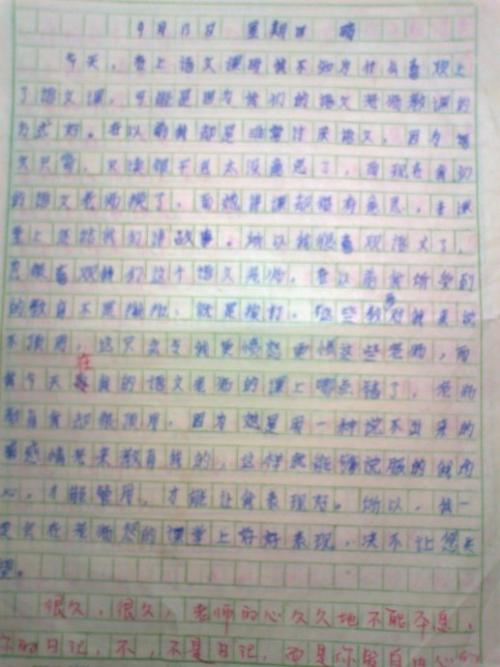 9月13日 星期四 晴
今天,在上语文课时我不知为什么喜欢上
了语文课,可能是因为我们的语文老师教课的
方式好。在以前我却是非常讨厌语文,因为语
文只写,又读很干且太没意思了,而现在我们
的语文老师换了,而她讲课却很有意思,在课
堂上还给我们讲故事。所以我很喜欢语文了,
也很喜欢我们这个语文老师。在以前我所受到
的教育不是 ,就是挨打。但这些教育对我来说
不顶用,这只会令我更愤怒更恨这些老师,而
我今天在我的语文老师的课上 了,老师
教育我却很顶用。因为她是用一种说不出来的
感情来教育我的,这样就能够说服的我内
心,才能管用,才能让我表现好。所以,我一
定会在老师您的课堂上好好表现,决不让您失
望。
很久,很久,老师的心久久地不能平息,
你的日记,不,不是日记,而是你